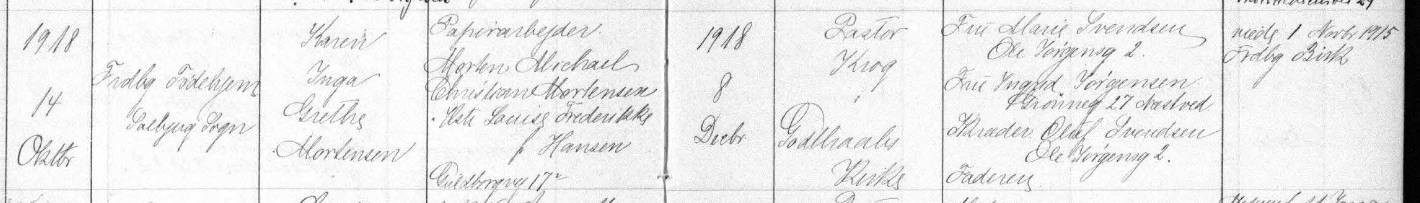 1918
14
Oktbr
Frdbg Fødehjem
Solbjerg Sogn
Karen
Inga
Grethe
Mortensen
Papirarbejder
Morten Michael
Christian Mortensen
Hst. Louise Frederikke
f Hansen
Guldborgvej 17²
1918
8
Decbr
Pastor
Krog
Godthaabs
Kirke
Fru Marie Svendsen
Ole Jørgensg 2.
Fru Ingrid Jørgensen
Grønneg 27 Næstved
Skræder Oluf Svendsen
Ole Jørgensg 2.
Faderen
viede 1 Novbr 1915
Frdbg Birk